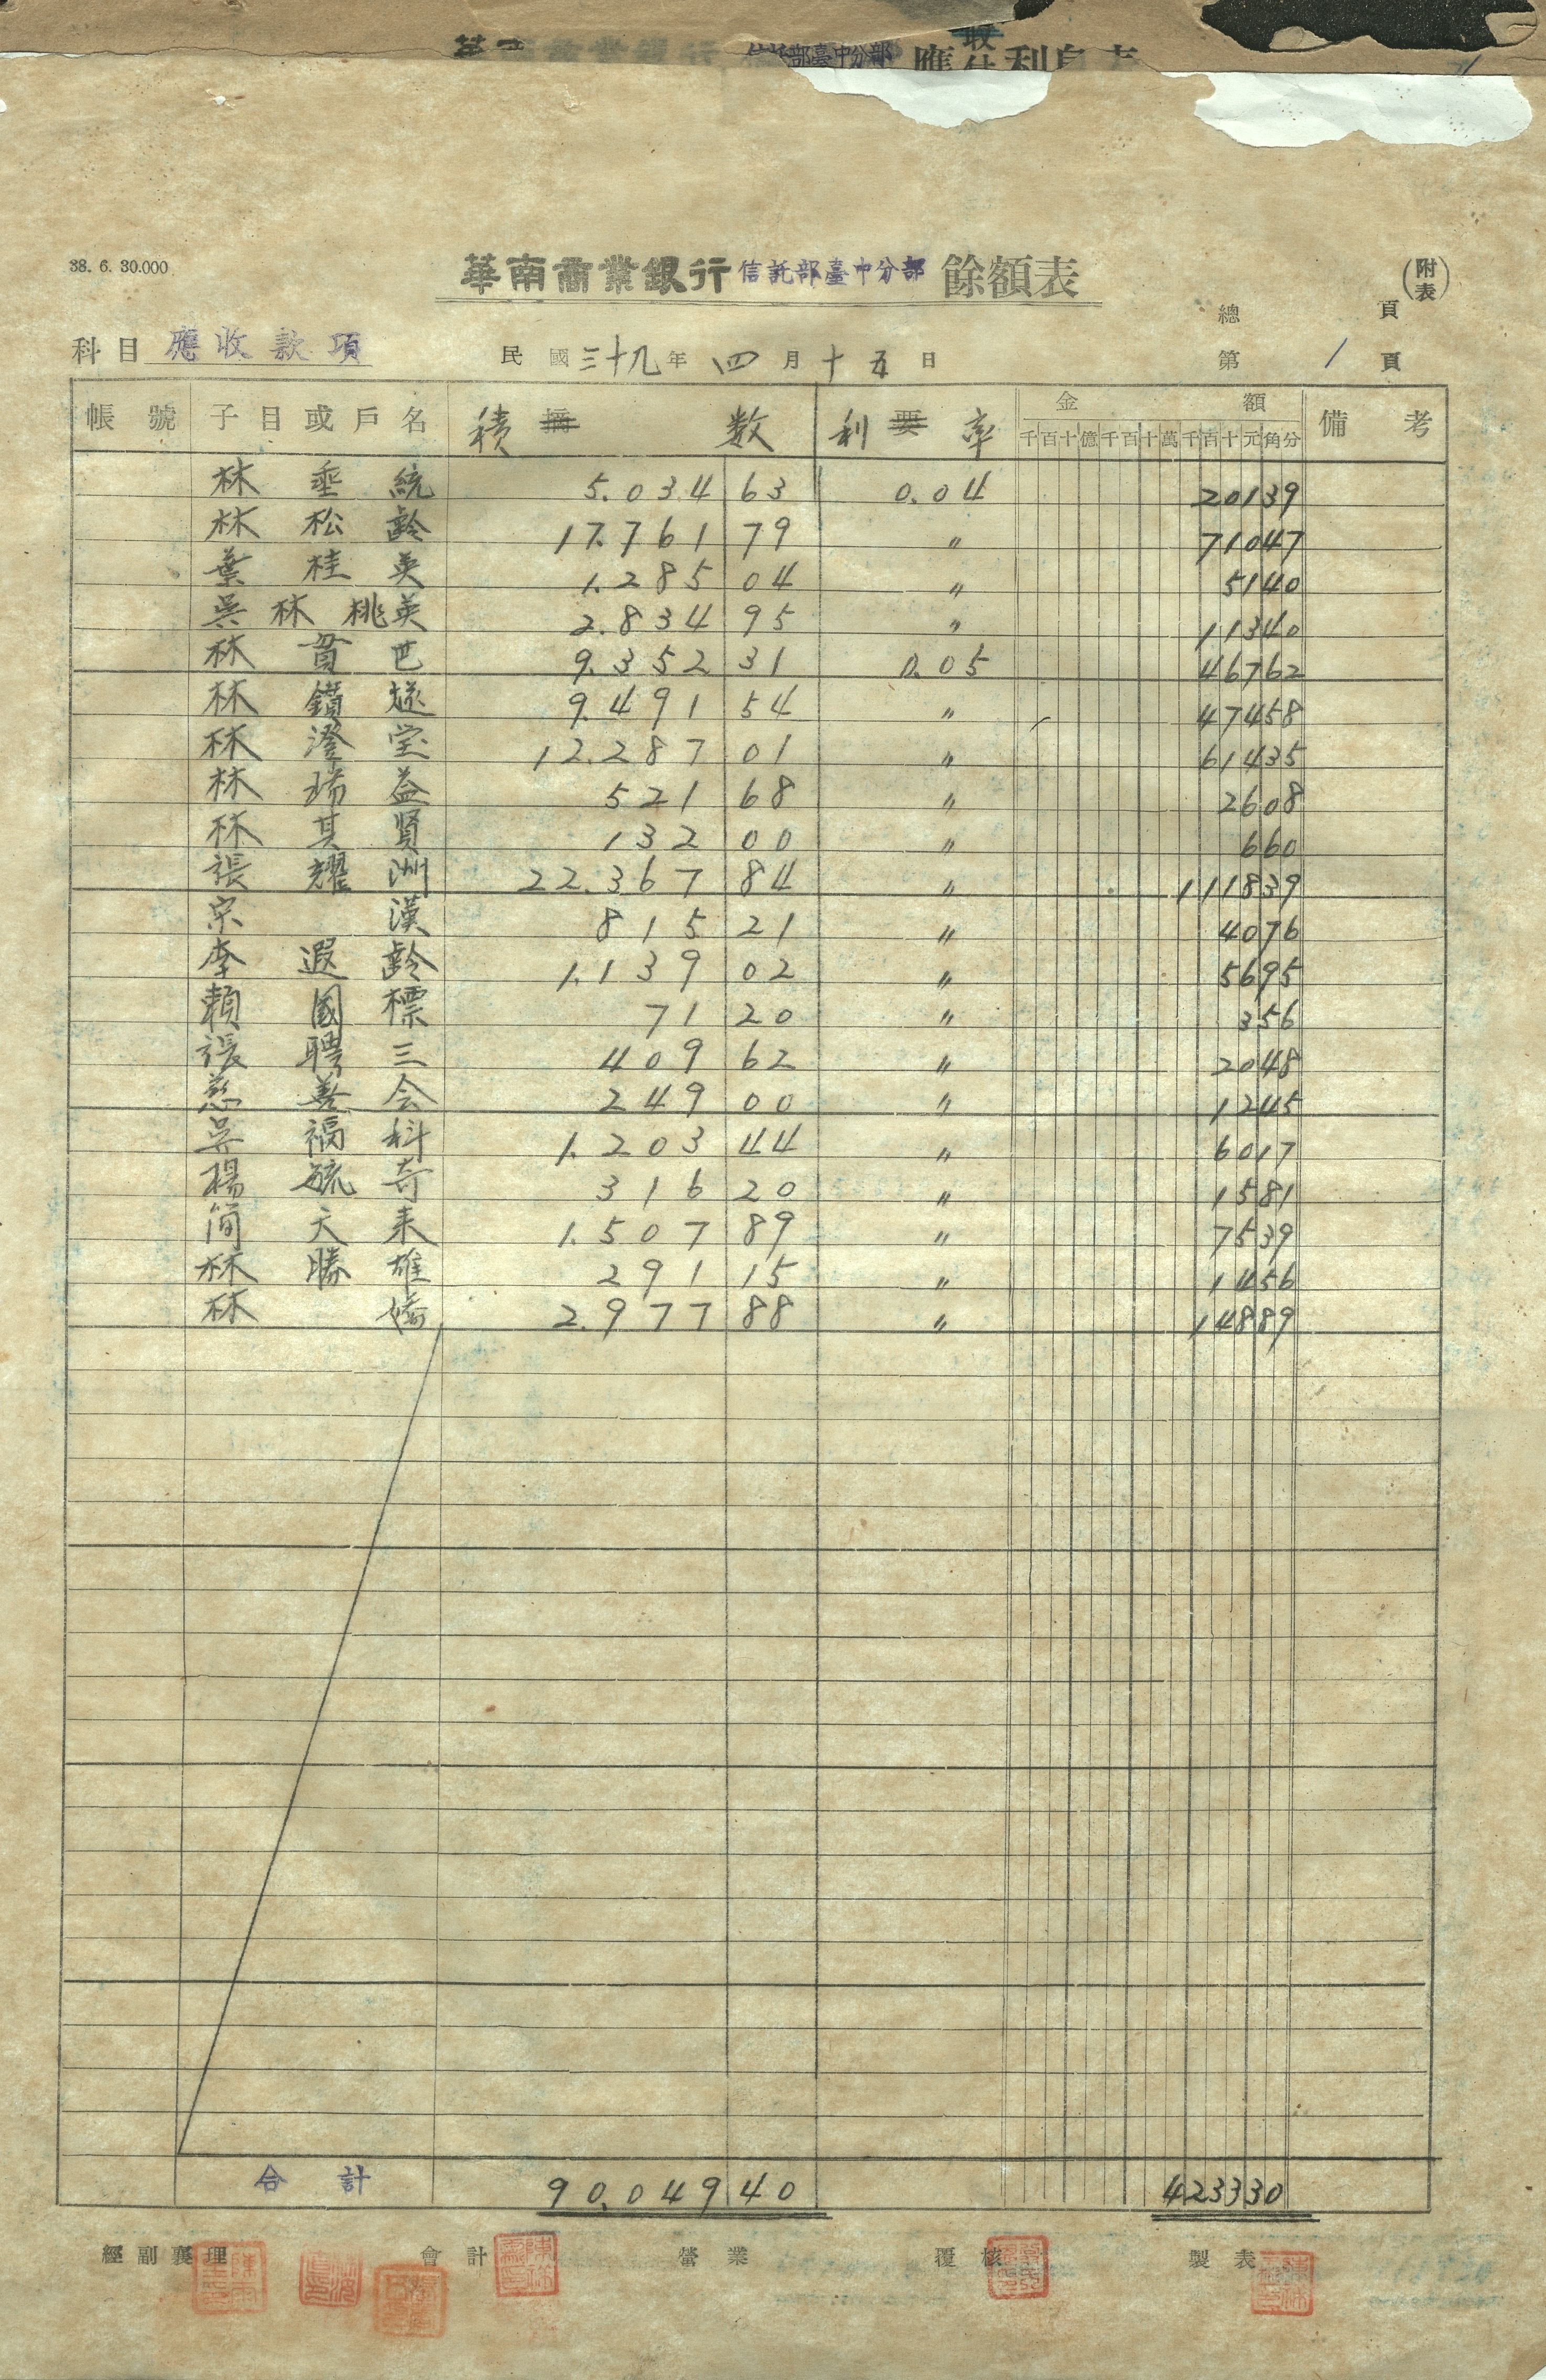 部臺中分部 應收付利息表
38. 6. 30.000
華南商業銀行信託部臺中分部 餘額表
(附表)
總 頁
科目 應收款項 民國三十九年 四月十五日 第 1 頁
帳號 子目或戶名 積摘数 利要率 金額 備考
千百十億千百十萬千百十元角分
林垂統 5.034 63 0.04 20139
林松齡 17.761 79 〃 71047
葉桂英 1.285 04 〃 5140
吳林桃英 2.834 95 〃 11340
林貫巴 9.352 31 0.05 46762
林鑽燧 9.491 54 〃 47458
林澄堂 12.287 01 〃 61435
林瑞益 521 68 〃 2608
林其賢 132 00 〃 660
張耀洲 22.367 84 〃 111839
宗漢 815 21 〃 4076
李遐齡 1.139 02 〃 5695
賴國標 71 20 〃 356
張聘三 409 62 〃 2048
慈善会 249 00 〃 1245
吳福科 1.203 44 〃 6017
楊毓奇 316 20 〃 1581
簡天来 1.507 89 〃 7539
林勝雄 291 15 〃 1456
林嬌 2.977 88 〃 14889
合計 90.049 40 423330
經副襄理 會計 營業 覆核 製表